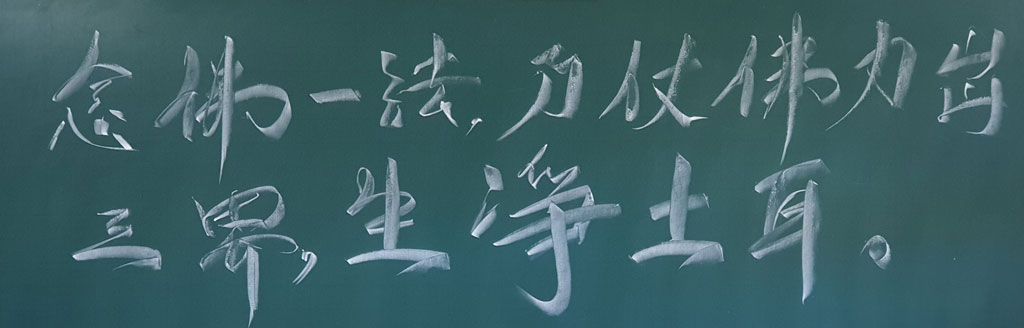 念佛一法，乃仗佛力出
三界，生淨土耳。